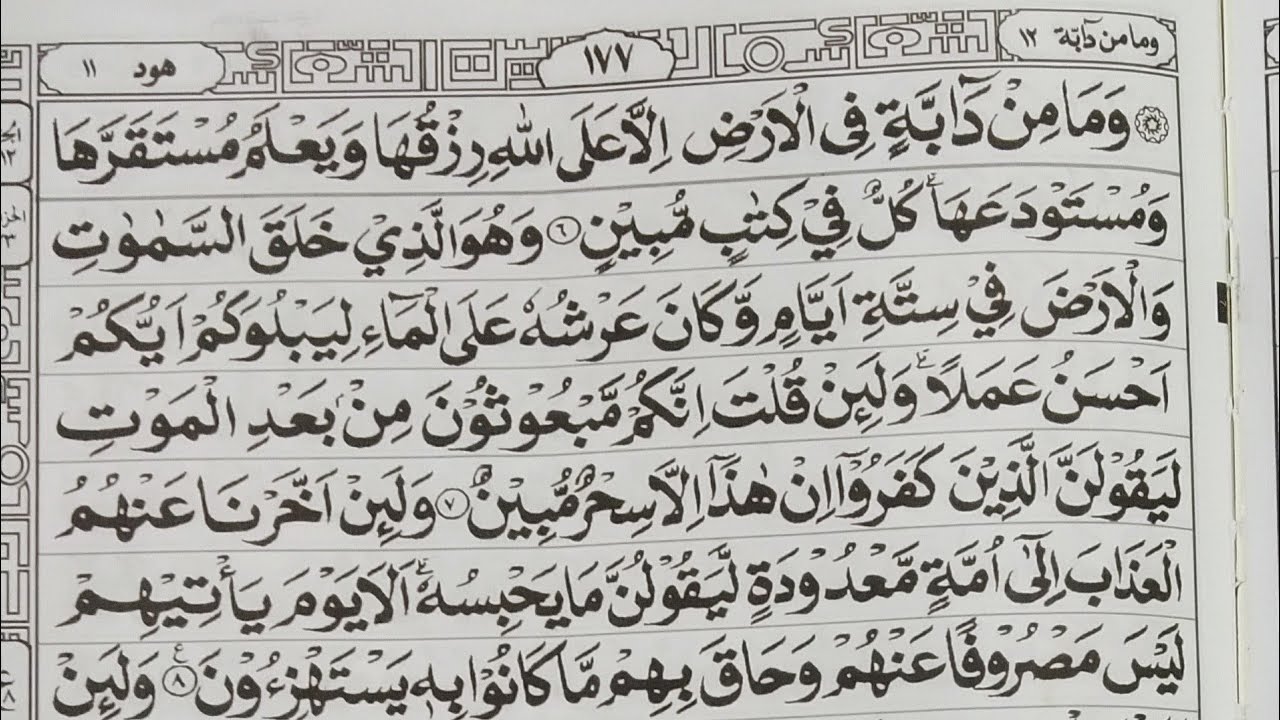 وما من دآبّة ١٢
١٧٧
هود ١١
وَمَا مِنْ دَآبَّةٍ فِى الْاَرْضِ اِلَّا عَلَى اللهِ رِزْقُهَا وَيَعْلَمُ مُسْتَقَرَّهَا
وَمُسْتَوْدَعَهَا ؕ كُلٌّ فِيْ كِتٰبٍ مُّبِيْنٍ ۝٦ وَهُوَ الَّذِيْ خَلَقَ السَّمٰوٰتِ
وَالْاَرْضَ فِيْ سِتَّةِ اَيَّامٍ وَّكَانَ عَرْشُهٗ عَلَى الْمَآءِ لِيَبْلُوَكُمْ اَيُّكُمْ
اَحْسَنُ عَمَلًا ؕ وَلَىِٕنْ قُلْتَ اِنَّكُمْ مَّبْعُوْثُوْنَ مِنْۢ بَعْدِ الْمَوْتِ
لَيَقُوْلَنَّ الَّذِيْنَ كَفَرُوْٓا اِنْ هٰذَآ اِلَّا سِحْرٌ مُّبِيْنٌ ۝٧ وَلَىِٕنْ اَخَّرْنَا عَنْهُمُ
الْعَذَابَ اِلٰٓى اُمَّةٍ مَّعْدُوْدَةٍ لَّيَقُوْلُنَّ مَا يَحْبِسُهٗ ؕ اَلَا يَوْمَ يَأْتِيْهِمْ
لَيْسَ مَصْرُوْفًا عَنْهُمْ وَحَاقَ بِهِمْ مَّا كَانُوْا بِهٖ يَسْتَهْزِءُوْنَ ۝٨ وَلَىِٕنْ